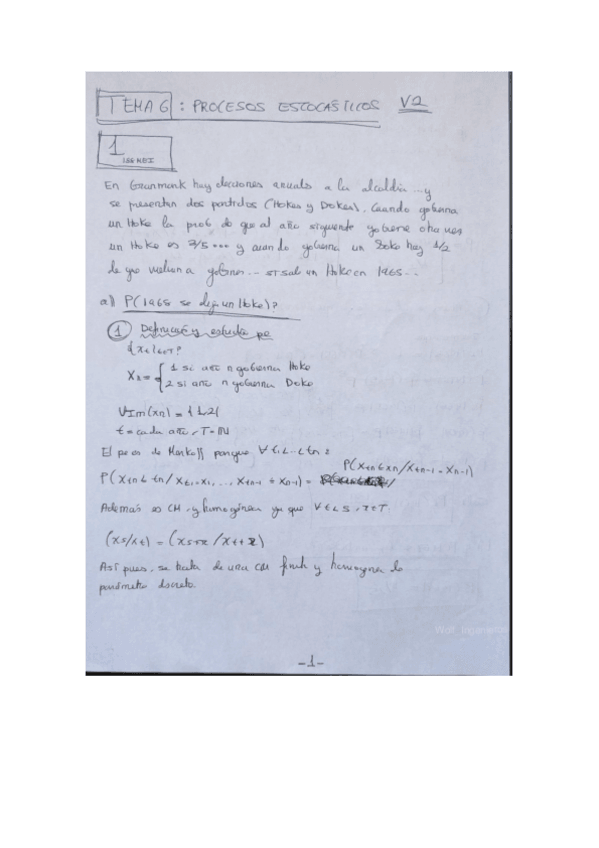 TEMA 6 : PROCESOS ESTOCÁSTICOS V2
1
En Granmank hay elecciones anuales a la alcaldía ... y
se presentan dos partidos (Hokes y Dokes). Cuando gobierna
un Hoke la prob de que al año siguiente gobierne otra vez
un Hoke es 2/5 ... y cuando gobierna un Doke hay 1/2
de que vuelvan a gobernar ... si sale un Hoke en 1965 ..
a) P(1968 se elija un Hoke)?
1 Definición y estudio pe
{Xt}t∈T?
Xn = { 1 si año n gobierna Hoke
2 si año n gobierna Doke
VIm(Xn) = {1,2}
t = cada año, T = ℕ
El proceso de Markoff porque ∀ t1 < ... < tn :
P(Xtn ≤ xn / Xt1 = x1, ..., Xtn-1 = xn-1) = P(Xtn ≤ xn / Xtn-1 = xn-1)
Además es CM y homogénea ya que ∀ t < s, r ∈ T
(Xs/Xt) = (Xs+r / Xt+r)
Así pues, se trata de una CM finita y homogénea de
parámetro discreto.
-1-